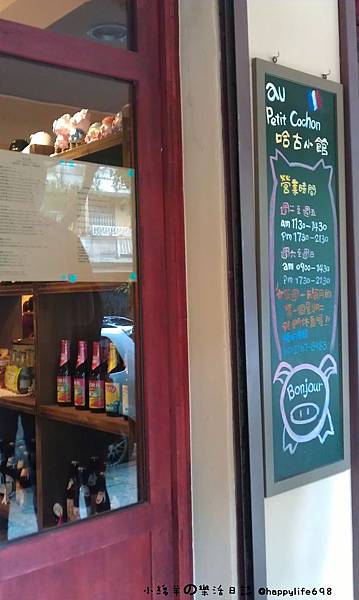 au
Petit Cochon
哈古小館
營業時間
週二至週五
am 1130-1430
pm 1730-2130
週六至週日
am 0900-1430
pm 1730-2130
每週一與每月的
第一個星期二
我們休息喔!!
Bonjour
小綿羊の樂活日誌 @happylife698